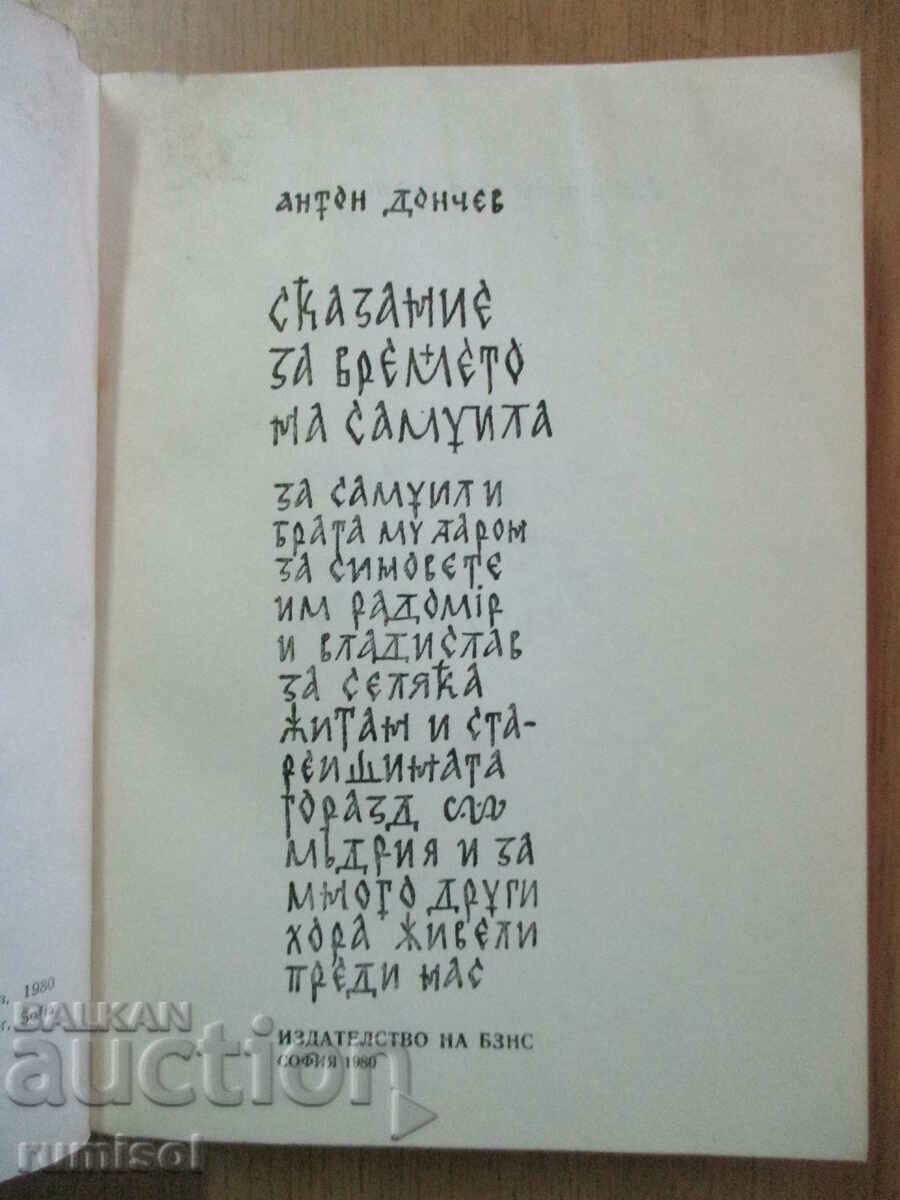 антон дончев
сказание
за времето
на самуила
за самуил и
брата му аарон
за синовете
им радомір
и владислав
за селяка
житан и ста-
реишината
горазд
мъдрия и за
много други
хора живели
преди нас
ИЗДАТЕЛСТВО НА БЗНС
СОФИЯ 1980
1980
BALKAN
auction
rumisol